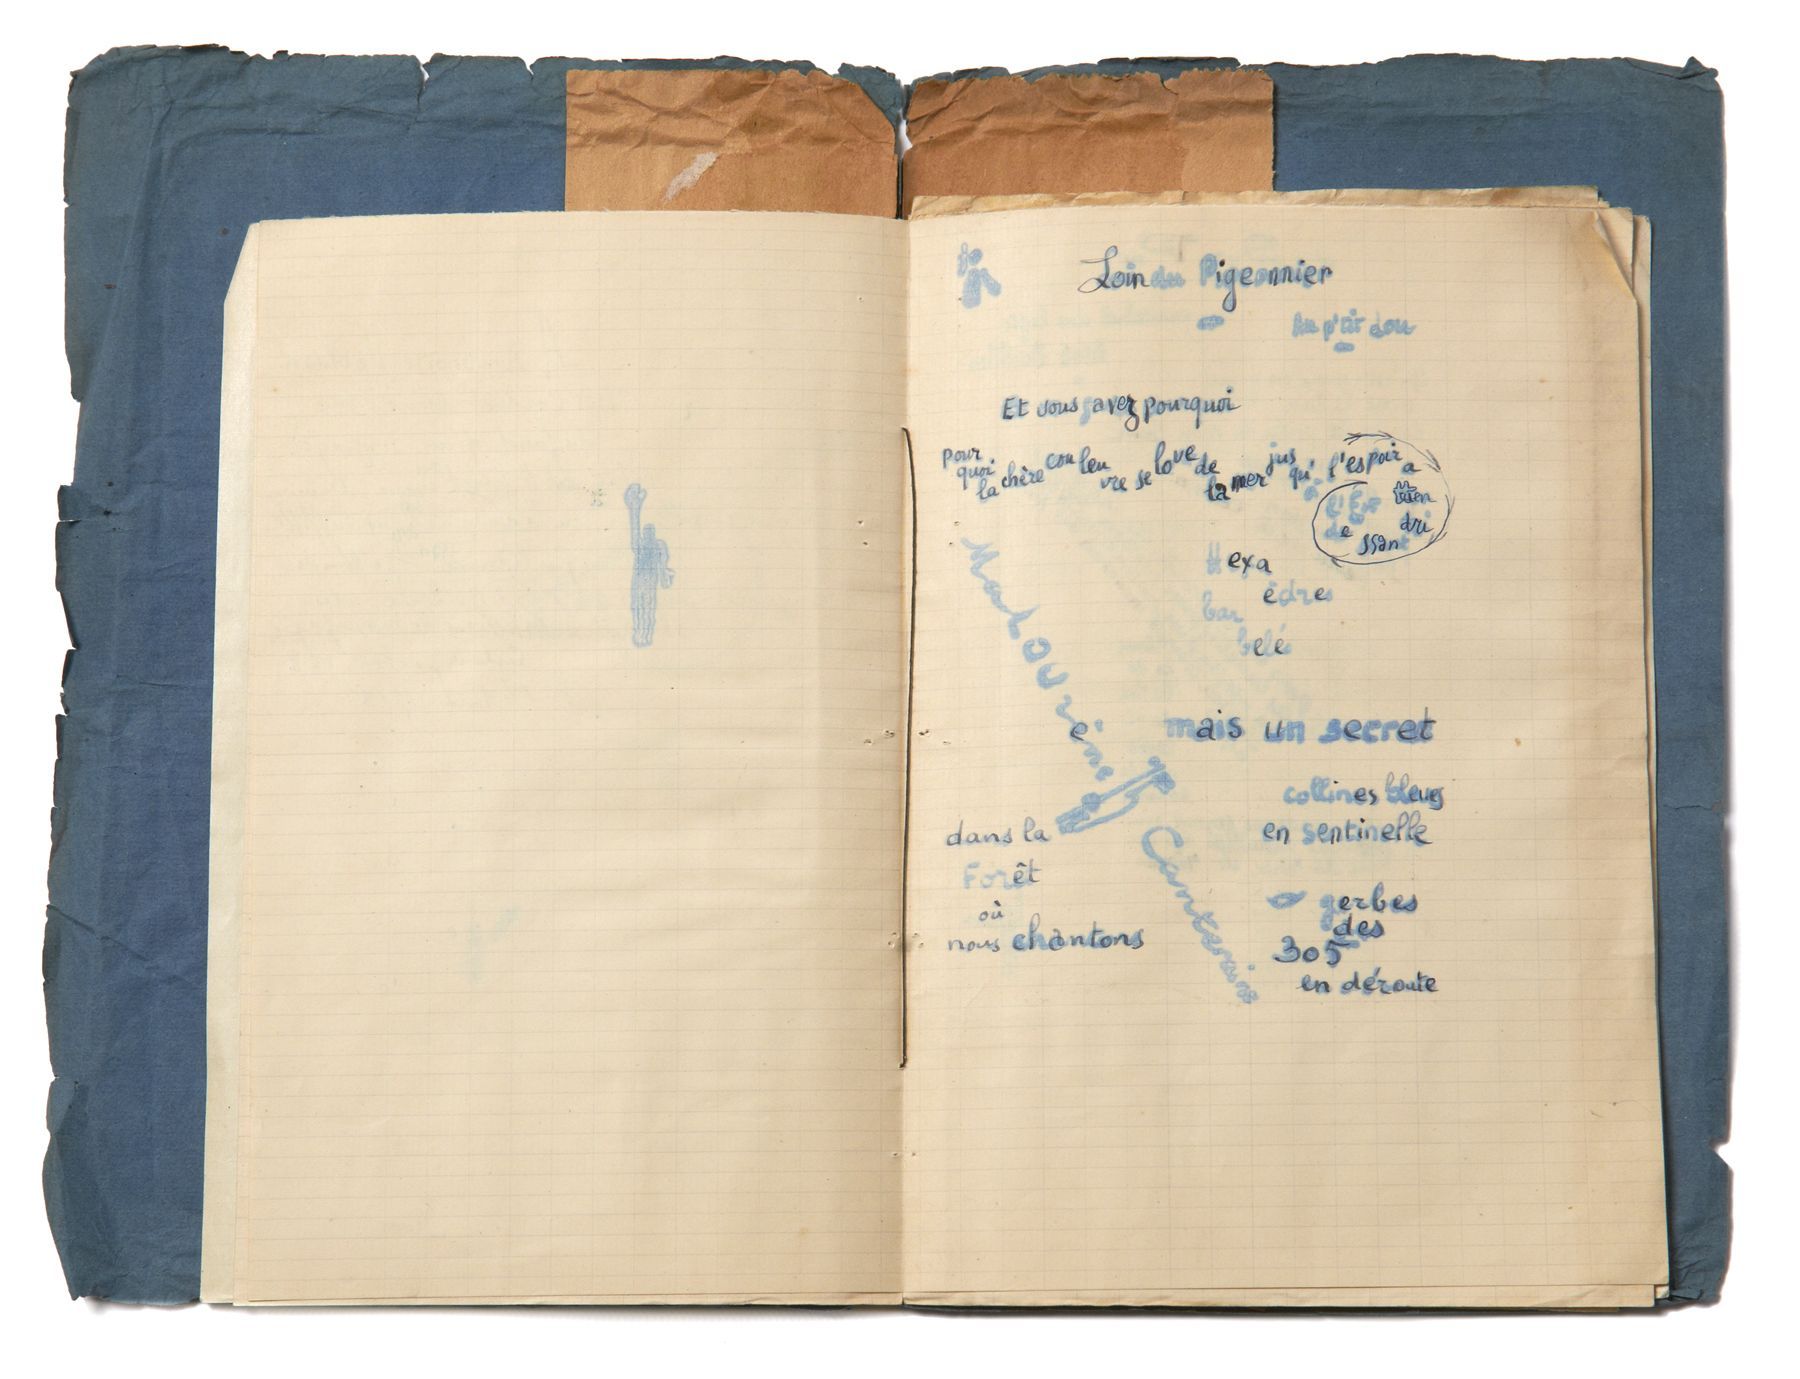 Loin du Pigeonnier
Au p'tit Lou
Et vous savez pourquoi
pour quoi la chère couleu vre se love de la mer jus qu'à l'espoir a tten dri ssant de l'Es t
Hexa
èdres
bar
belé
Malourène 75 Canteraine
mais un secret
collines bleues
en sentinelle
dans la
Forêt
où
nous chantons
O gerbes
des
305
en déroute